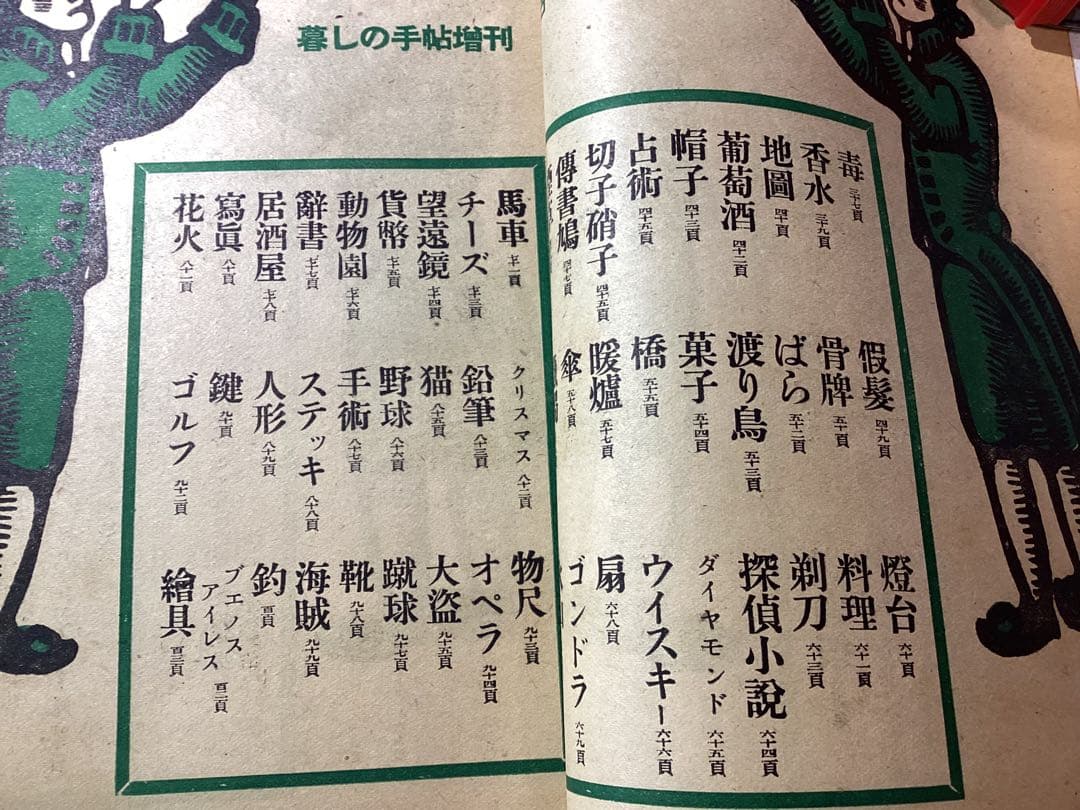 暮しの手帖増刊
毒 三十七頁
香水 三十九頁
地圖 四十頁
葡萄酒 四十二頁
帽子 四十三頁
占術 四十五頁
切子硝子 四十五頁
傳書鳩 四十七頁
假髮 四十九頁
骨牌 五十頁
ばら 五十二頁
渡り鳥 五十三頁
菓子 五十四頁
橋 五十五頁
暖爐 五十七頁
傘 五十八頁
燈台 六十頁
料理 六十一頁
剃刀 六十三頁
探偵小説 六十四頁
ダイヤモンド 六十五頁
ウイスキー 六十六頁
扇 六十八頁
ゴンドラ 六十九頁
馬車 七十一頁
チーズ 七十三頁
望遠鏡 七十四頁
貨幣 七十五頁
動物園 七十六頁
辭書 七十七頁
居酒屋 七十八頁
寫眞 八十頁
花火 八十一頁
クリスマス 八十二頁
鉛筆 八十三頁
猫 八十五頁
野球 八十六頁
手術 八十七頁
ステッキ 八十八頁
人形 八十九頁
鍵 九十頁
ゴルフ 九十二頁
物尺 九十三頁
オペラ 九十四頁
大盗 九十五頁
蹴球 九十七頁
靴 九十八頁
海賊 九十九頁
釣 百頁
ブエノス
アイレス 百二頁
繪具 百三頁